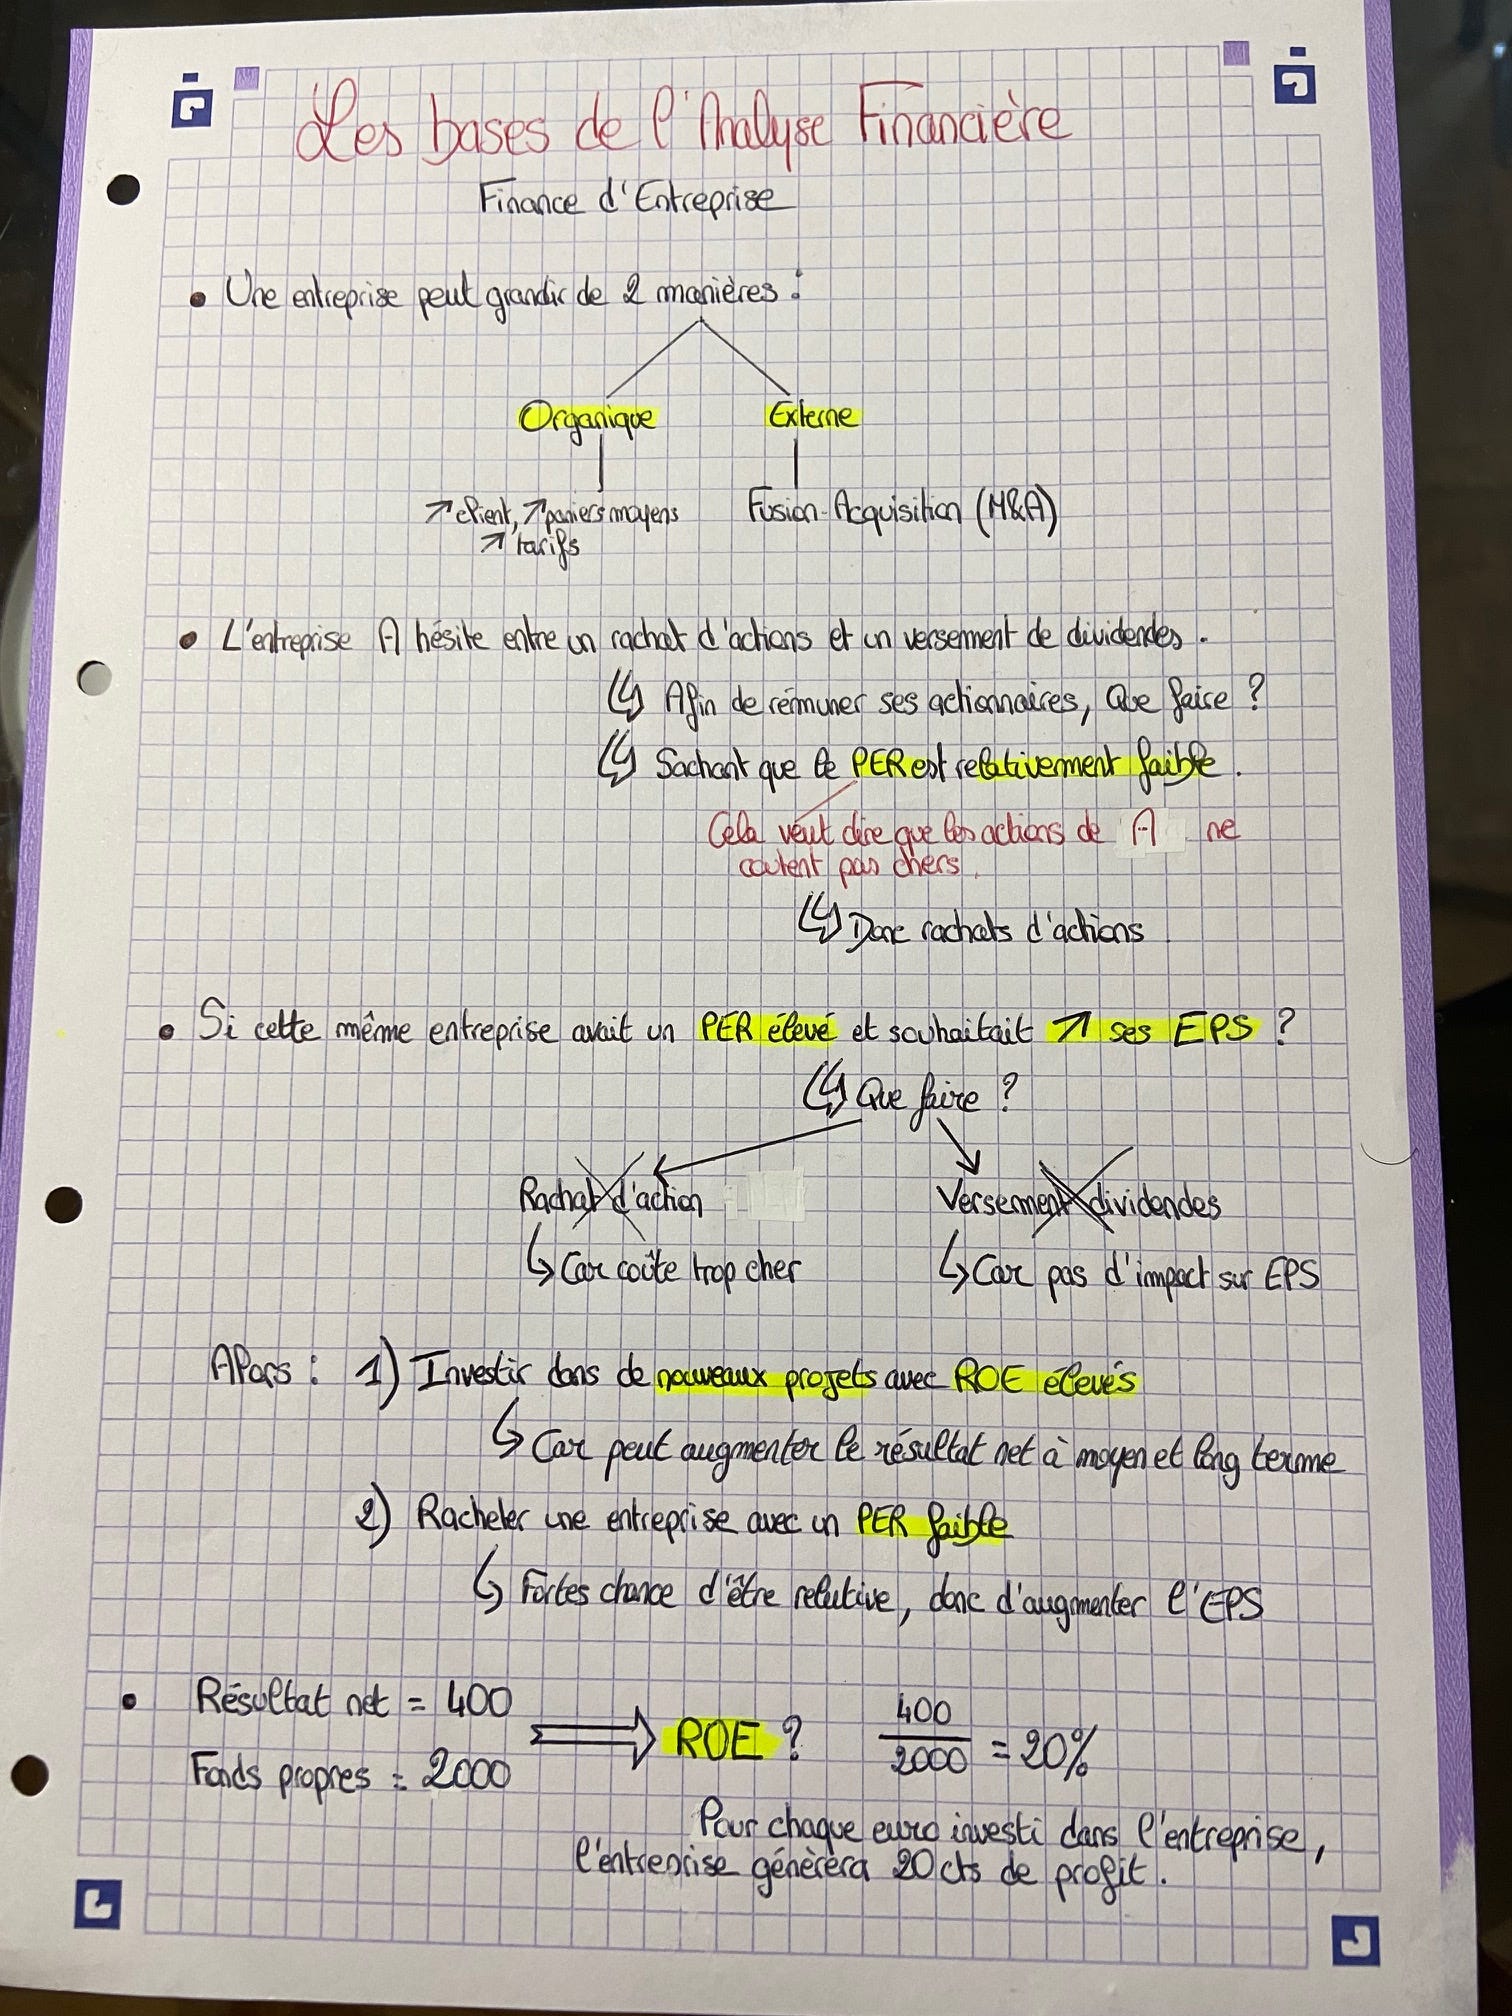 Les bases de l'Analyse Financière
Finance d'Entreprise
• Une entreprise peut grandir de 2 manières :
Organique Externe
↗ client, ↗ paniers moyens Fusion-Acquisition (M&A)
↗ tarifs
• L'entreprise A hésite entre un rachat d'actions et un versement de dividendes.
↳ Afin de rémuner ses actionnaires, Que faire ?
↳ Sachant que le PER est relativement faible.
Cela veut dire que les actions de A ne
coutent pas chers.
↳ Donc rachats d'actions
• Si cette même entreprise avait un PER élevé et souhaitait ↗ ses EPS ?
↳ Que faire ?
Rachat d'action Versement dividendes
↳ Car coûte trop cher ↳ Car pas d'impact sur EPS
Alors : 1) Investir dans de nouveaux projets avec ROE élevés
↳ Car peut augmenter le résultat net à moyen et long terme
2) Racheter une entreprise avec un PER faible
↳ Fortes chance d'être relutive, donc d'augmenter l'EPS
• Résultat net = 400
Fonds propres = 2000
⇒ ROE ? 400/2000 = 20%
Pour chaque euro investi dans l'entreprise,
l'entreprise génèrera 20 cts de profit.